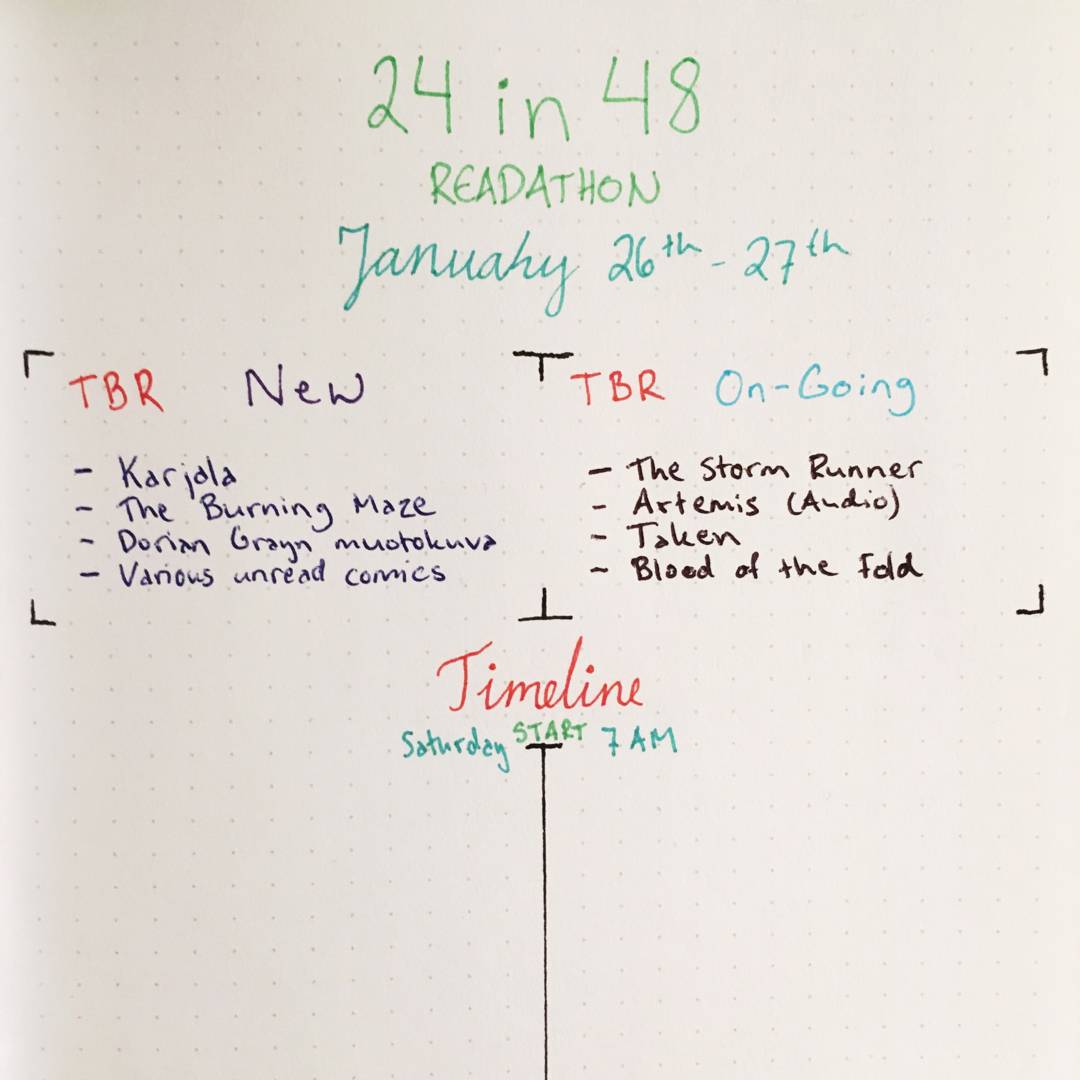 24 in 48
READATHON
January 26th - 27th
TBR New
- Karjala
- The Burning Maze
- Dorian Grayn muotokuva
- Various unread comics
TBR On-Going
- The Storm Runner
- Artemis (Audio)
- Taken
- Blood of the Fold
Timeline
Saturday START 7 AM